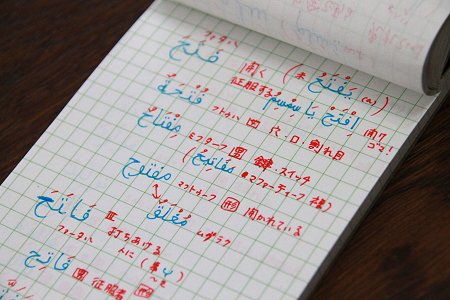 ファタハ
فَتَحَ 開く (未 يَفْتَحُ (a))
征服する اِفْتَحْ يَا سِمْسِمُ 開け
ゴマ!
فُتْحَةٌ フトゥハ 図 穴・口・割れ目
مِفْتَاحٌ ミフターフ 図 鍵・スイッチ
(مَفَاتِيحُ マファーティーフ 複)
مَفْتُوحٌ マフトゥーフ 形 開かれている
مُغْلَقٌ ムグラク
فَاتَحَ Ⅲ 打ちあける
ファータハ 人に
فَاتِحٌ 図 征服者 形